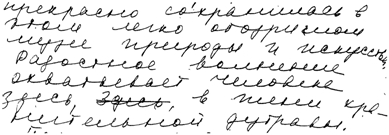 прекрасно сохранились в
этом легко обозримом
музее природы и искусства.
Радостное волнение
охватывает человека
здесь, здесь, в тени хра-
нительной дубравы.